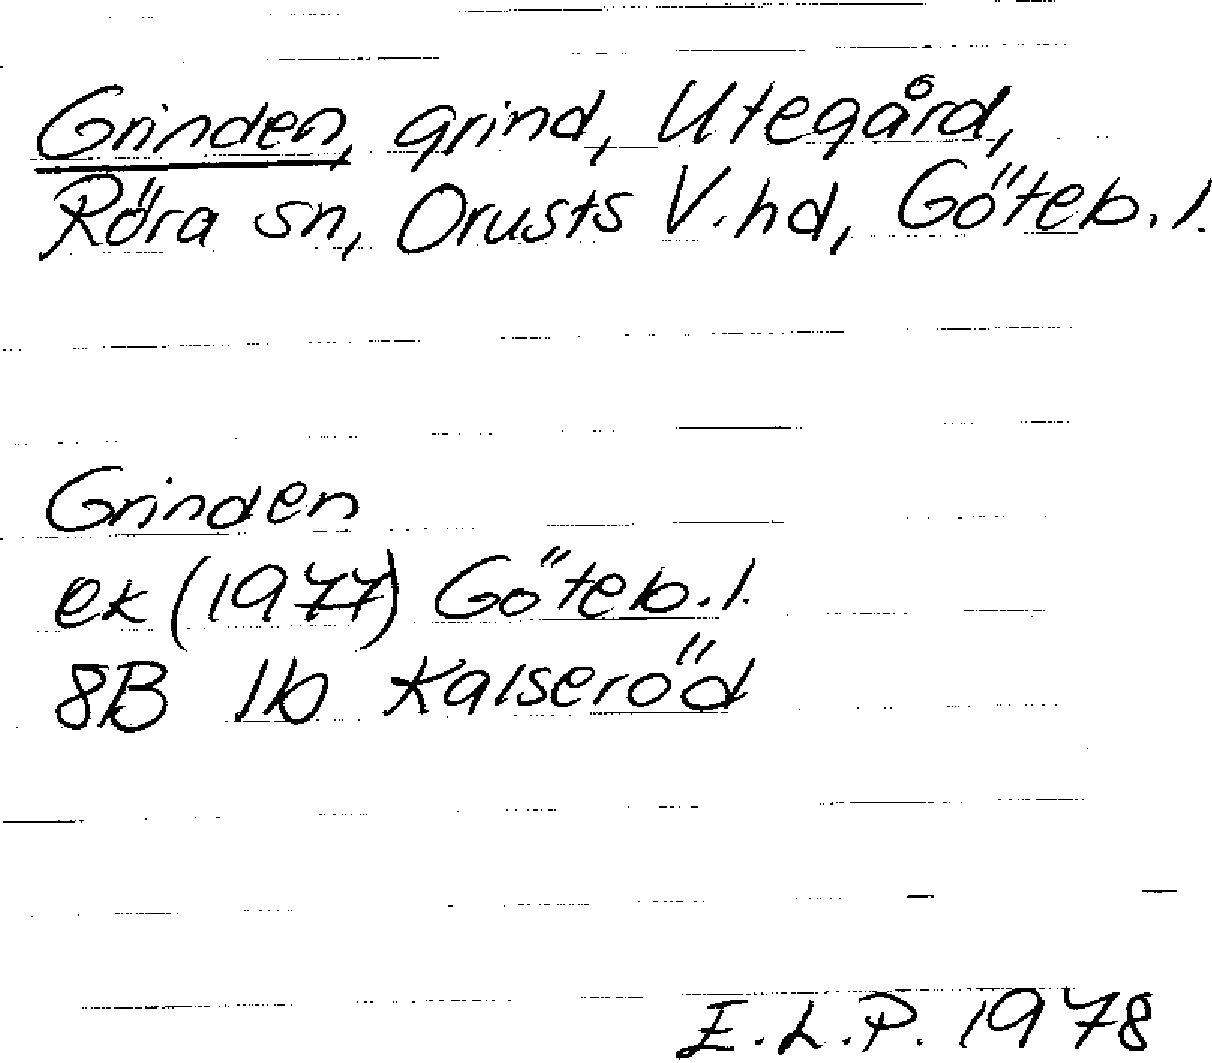 Grinden, grind, Utegård,
Röra sn, Orusts V. hd, Göteb. l.
Grinden
ek (1977) Göteb. l.
8B 1b Kalseröd
E. L. P. 1978